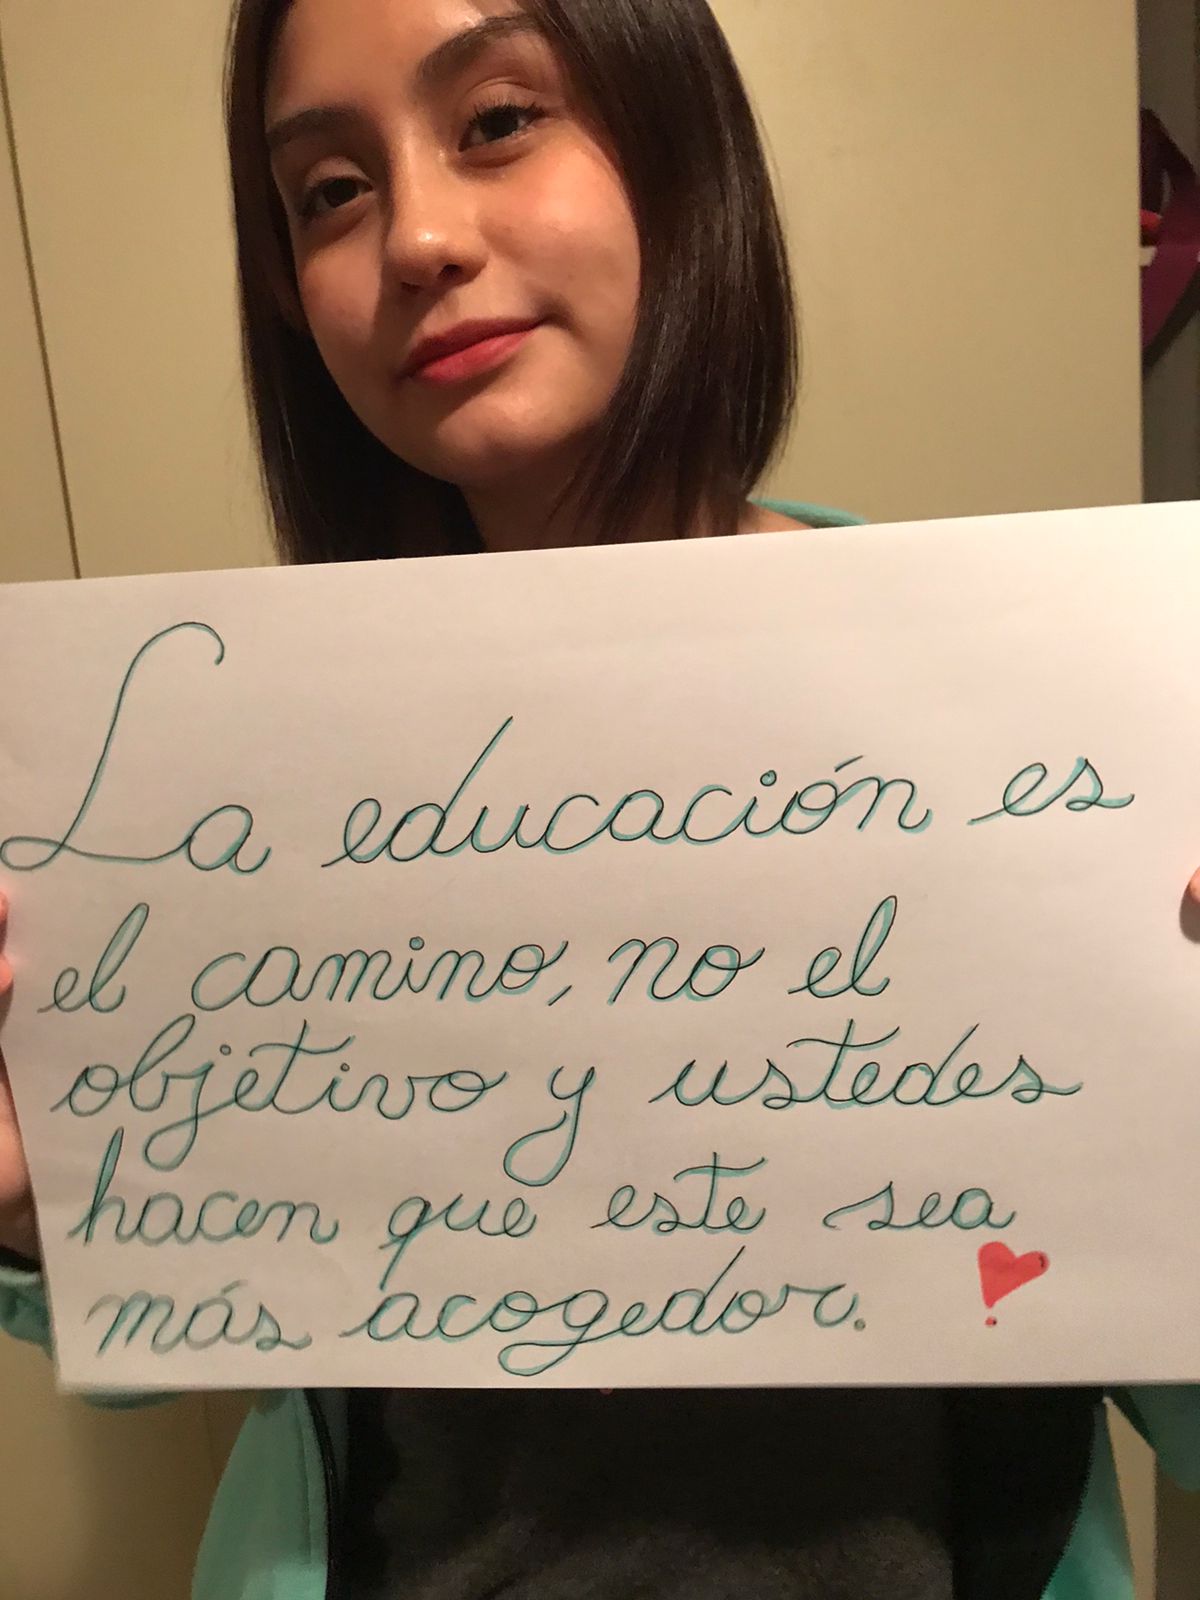 La educación es
el camino, no el
objetivo y ustedes
hacen que este sea
más acogedor.